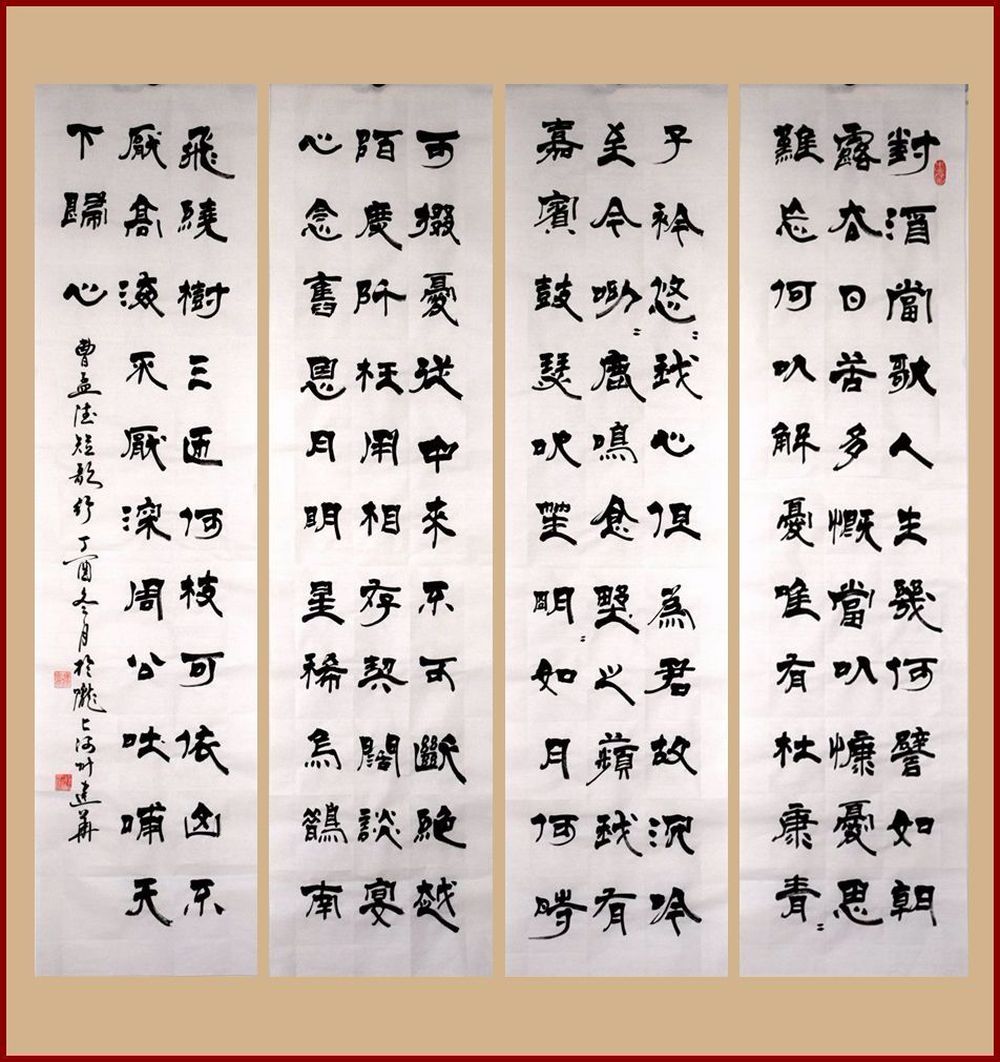 對酒當歌人生幾何譬如朝
露去日苦多慨當以慷憂思
難忘何以解憂唯有杜康青〻
子衿悠〻我心但為君故沉吟
至今呦〻鹿鳴食野之蘋我有
嘉賓鼓瑟吹笙明〻如月何時
可掇憂從中來不可斷絕越
陌度阡枉用相存契闊談宴
心念舊恩月明星稀烏鵲南
飛繞樹三匝何枝可依山不
厭高海不厭深周公吐哺天
下歸心
曹孟德短歌行丁酉冬月於隴上河州建華